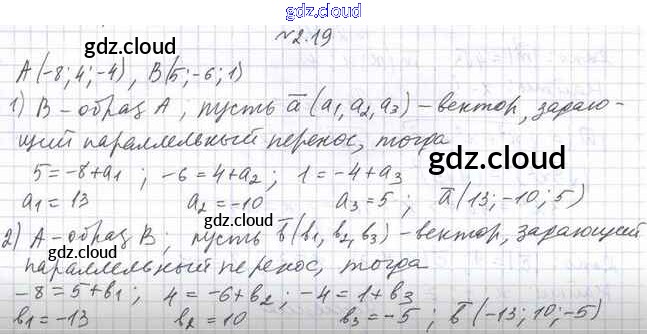 gdz.cloud
№2.19
gdz.cloud
A(-8; 4; -4), B(5; -6; 1)
1) B - образ A; пусть a̅(a₁, a₂, a₃) - вектор, задаю-
gdz.cloud
щий параллельный перенос, тогда
gdz.cloud
5 = -8 + a₁; -6 = 4 + a₂; 1 = -4 + a₃
a₁ = 13 a₂ = -10 a₃ = 5; a̅(13; -10; 5)
gdz.cloud
2) A - образ B; пусть b̅(b₁, b₂, b₃) - вектор, задающий
параллельный перенос, тогда
gdz.cloud
-8 = 5 + b₁; 4 = -6 + b₂; -4 = 1 + b₃
b₁ = -13 b₂ = 10 b₃ = -5; b̅(-13; 10; -5)
gdz.cloud